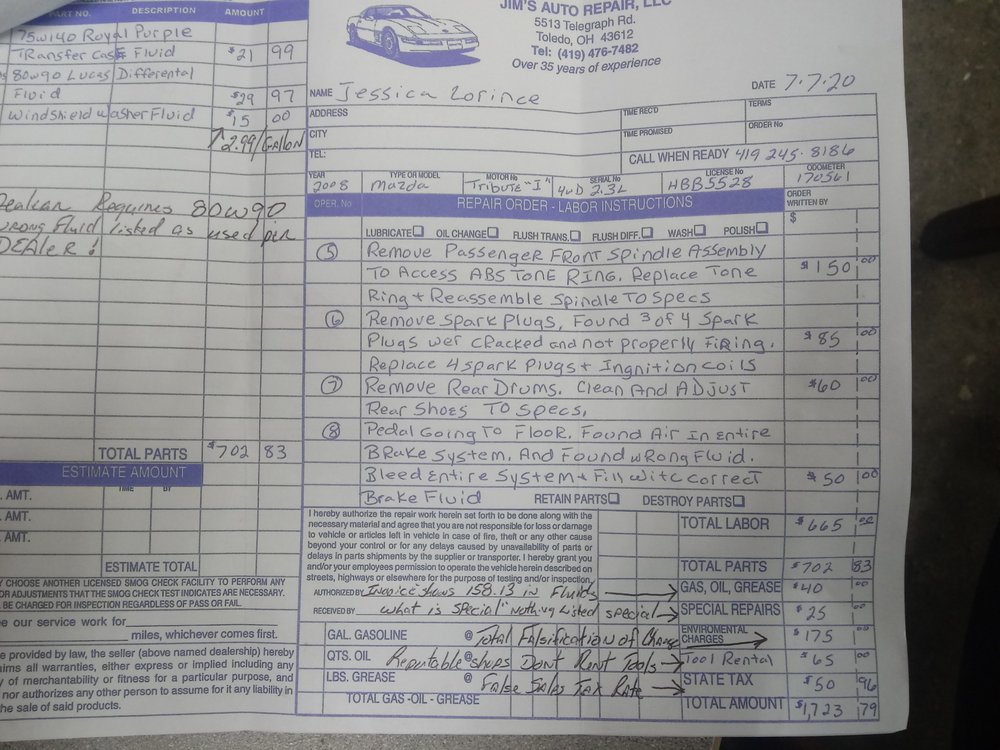 PART NO. DESCRIPTION AMOUNT
75W140 Royal Purple
Transfer Case Fluid $21 99
80w90 Lucas Differental
Fluid $29 97
Windshield washer Fluid $15 00
2.99/Gallon
Requires 80w90
wrong Fluid listed as used per
DEALER!
TOTAL PARTS $702 83
ESTIMATE AMOUNT
AMT. TIME BY
AMT.
AMT.
ESTIMATE TOTAL
Y CHOOSE ANOTHER LICENSED SMOG CHECK FACILITY TO PERFORM ANY
OR ADJUSTMENTS THAT THE SMOG CHECK TEST INDICATES ARE NECESSARY.
BE CHARGED FOR INSPECTION REGARDLESS OF PASS OR FAIL.
e our service work for
miles, whichever comes first.
e provided by law, the seller (above named dealership) hereby
aims all warranties, either express or implied including any
y of merchantability or fitness for a particular purpose, and
nor authorizes any other person to assume for it any liability in
the sale of said products.
JIM'S AUTO REPAIR, LLC
5513 Telegraph Rd.
Toledo, OH 43612
Tel: (419) 476-7482
Over 35 years of experience
DATE 7-7-20
NAME Jessica Lorince
ADDRESS TIME REC'D TERMS
CITY TIME PROMISED ORDER No
TEL: CALL WHEN READY 419 245-8186
YEAR TYPE OR MODEL MOTOR No SERIAL No LICENSE No ODOMETER
2008 Mazda Tribute "I" 4WD 2.3L HBB5528 170561
OPER. No REPAIR ORDER - LABOR INSTRUCTIONS ORDER WRITTEN BY
$
LUBRICATE OIL CHANGE FLUSH TRANS. FLUSH DIFF. WASH POLISH
5 Remove Passenger Front Spindle Assembly
To Access ABS Tone Ring. Replace Tone $150 00
Ring + Reassemble Spindle To Specs
6 Remove Spark Plugs, Found 3 of 4 Spark
Plugs wer cracked and not properly firing. $85 00
Replace 4 spark Plugs + Ingnition coils
7 Remove Rear Drums. Clean And Adjust $60 00
Rear Shoes To Specs.
8 Pedal Going To Floor. Found Air In Entire
Brake System. And Found wrong Fluid.
Bleed Entire System + Fill witc correct $50 00
Brake Fluid RETAIN PARTS DESTROY PARTS
I hereby authorize the repair work herein set forth to be done along with the
necessary material and agree that you are not responsible for loss or damage
to vehicle or articles left in vehicle in case of fire, theft or any other cause
beyond your control or for any delays caused by unavailability of parts or
delays in parts shipments by the supplier or transporter. I hereby grant you
and/or your employees permission to operate the vehicle herein described on
streets, highways or elsewhere for the purpose of testing and/or inspection.
TOTAL LABOR $665 00
TOTAL PARTS $702 83
AUTHORIZED BY Invoice shows 158.13 in Fluids GAS, OIL, GREASE $40
RECEIVED BY what is special "nothing listed special SPECIAL REPAIRS $25
GAL. GASOLINE @ Total Falsification of Charge ENVIROMENTAL CHARGES $175 00
QTS. OIL @ Reputable shops Dont Rent Tools Tool Rental $65 00
LBS. GREASE @ False Sales Tax Rate STATE TAX $50 96
TOTAL GAS - OIL - GREASE TOTAL AMOUNT $1,723 79